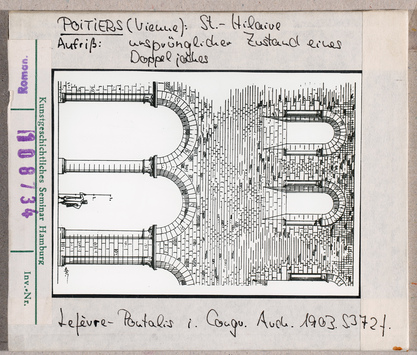 POITIERS (Vienne): St.-Hilaire
Aufriß: ursprünglicher Zustand eines
Doppeljoches
Roman.
Kunstgeschichtliches Seminar Hamburg
Inv.-Nr.
Lefèvre-Pontalis i. Congr. Arch. 1903. S372f.